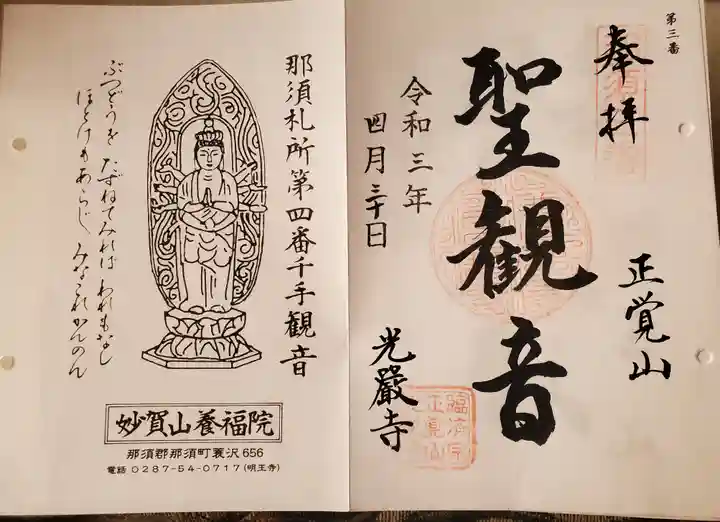 第三番
奉拝
聖観音
令和三年
四月三十日
正覚山
光嚴寺
臨済宗
正覚山
那須札所第四番千手観音
ぶつどうを たずねてみれば われもなし
ほとけもあらじ みなこれかんのん
妙賀山養福院
那須郡那須町蓑沢656
電話 0287-54-0717(明王寺)